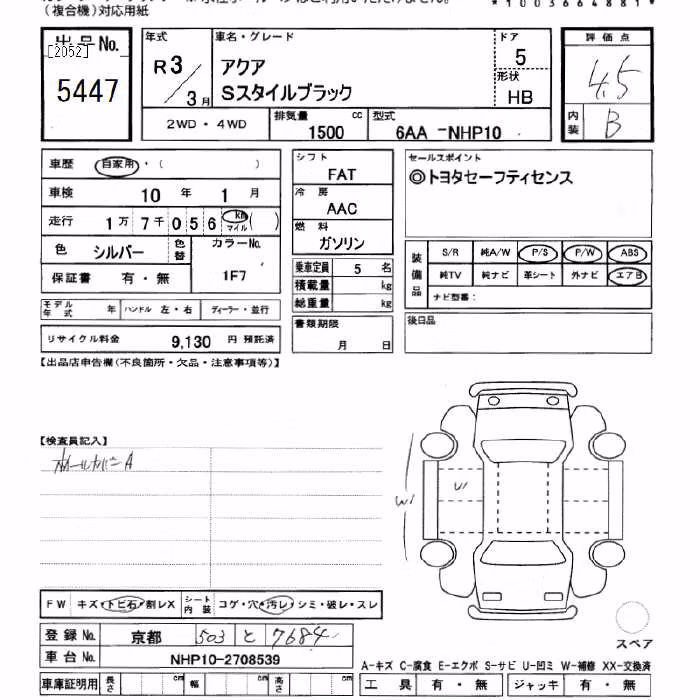 (複合機)対応用紙
*1003664881*
出品No.
[2052]
5447
年式
R3/3月
車名・グレード
アクア
Sスタイルブラック
ドア
5
形状
HB
2WD・4WD
排気量
1500 cc
型式
6AA-NHP10
評価点
4.5
内装
B
車歴 自家用・( )
車検 10年 1月
走行 1万7千056 km マイル( )
色 シルバー
色替
カラーNo.
1F7
保証書 有・無
モデル年式 年
ハンドル 左・右
ディーラー・並行
リサイクル料金 9,130 円 預託済
シフト
FAT
冷房
AAC
燃料
ガソリン
乗車定員 5 名
積載量 kg
総重量 kg
書類期限
月 日
セールスポイント
◎トヨタセーフティセンス
装備品
S/R 純A/W P/S P/W ABS
純TV 純ナビ 革シート 外ナビ エアB
ナビ型番:
後日品
【出品店申告欄(不良箇所・欠品・注意事項等)】
【検査員記入】
ホイールカバーA
W
W
FW キズ・トビ石・割レX
シート内装 コゲ・穴・汚レ・シミ・破レ・スレ
登録No. 京都 503 と 7684
車台No. NHP10-2708539
車庫証明用 長さ cm 幅 cm 高さ cm
スペア
A-キズ C-腐食 E-エクボ S-サビ U-凹ミ W-補修 XX-交換済
工具 有・無 ジャッキ 有・無